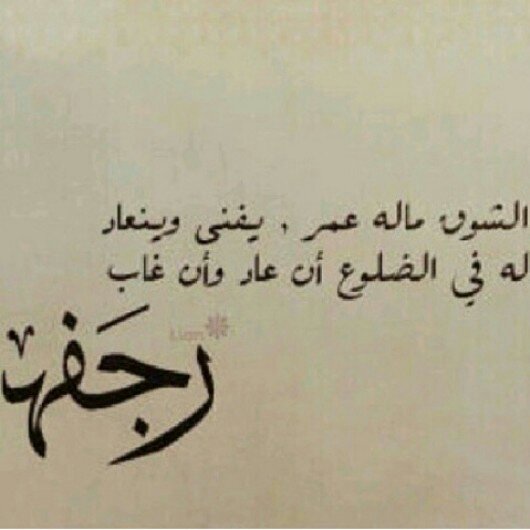 الشوق ماله عمر . يفنى وينعاد
له في الضلوع أن عاد وأن غاب
رجفه